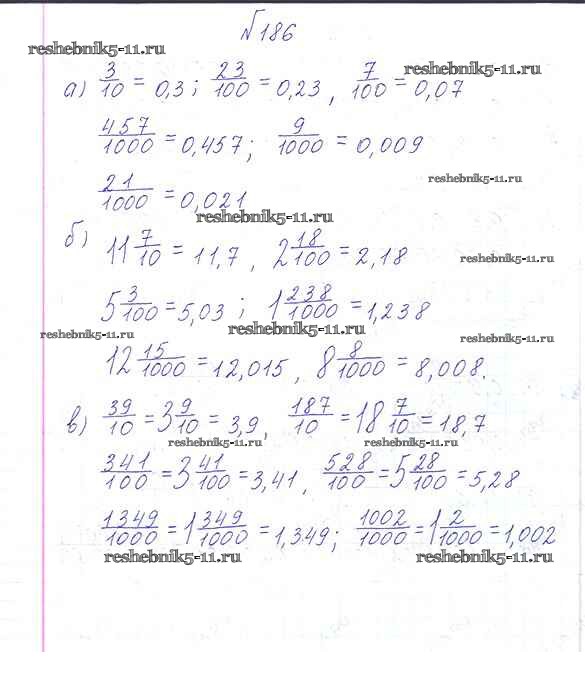 №186
reshebnik5-11.ru
reshebnik5-11.ru
а) 3/10 = 0,3; 23/100 = 0,23, 7/100 = 0,07
457/1000 = 0,457; 9/1000 = 0,009
reshebnik5-11.ru
21/1000 = 0,021
reshebnik5-11.ru
б) 11 7/10 = 11,7, 2 18/100 = 2,18
reshebnik5-11.ru
5 3/100 = 5,03; 1 238/1000 = 1,238
reshebnik5-11.ru
reshebnik5-11.ru
reshebnik5-11.ru
12 15/1000 = 12,015, 8 8/1000 = 8,008.
в) 39/10 = 3 9/10 = 3,9, 187/10 = 18 7/10 = 18,7
reshebnik5-11.ru
reshebnik5-11.ru
341/100 = 3 41/100 = 3,41, 528/100 = 5 28/100 = 5,28
1349/1000 = 1 349/1000 = 1,349; 1002/1000 = 1 2/1000 = 1,002
reshebnik5-11.ru
reshebnik5-11.ru